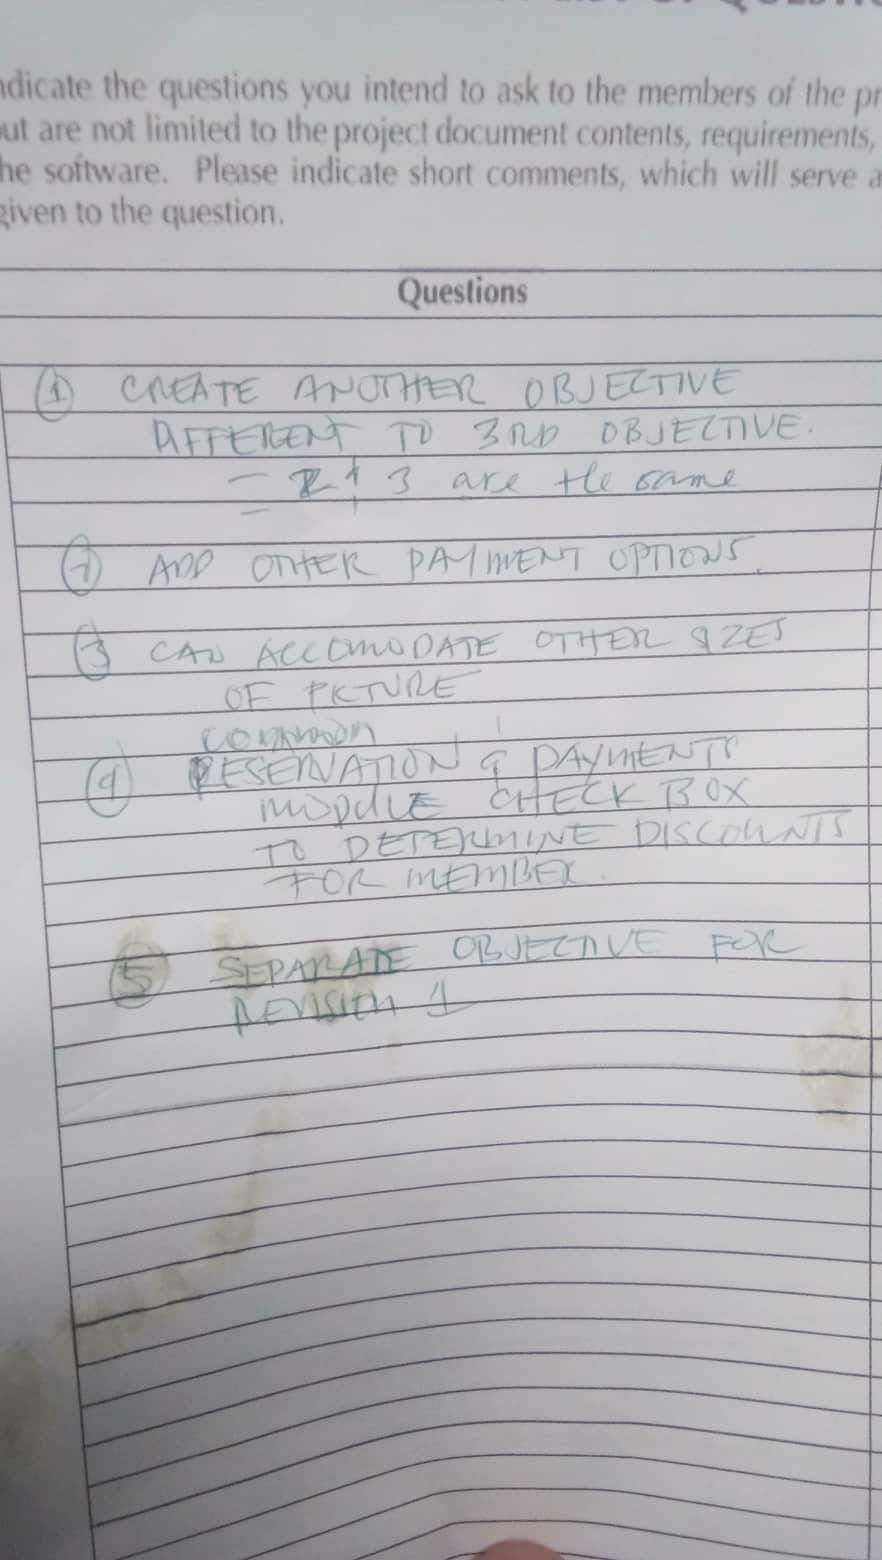 ndicate the questions you intend to ask to the members of the pr
out are not limited to the project document contents, requirements,
he software. Please indicate short comments, which will serve a
given to the question.
Questions
① CREATE ANOTHER OBJECTIVE
DIFFERENT TO 3RD OBJECTIVE.
- 2 & 3 are the same
② ADD OTHER PAYMENT OPTIONS.
③ CAN ACCOMODATE OTHER SIZES
OF PICTURE
common
④ RESERVATION & PAYMENTS
MODULE CHECK BOX
TO DETERMINE DISCOUNTS
FOR MEMBER.
⑤ SEPARATE OBJECTIVE FOR
REVISION 1